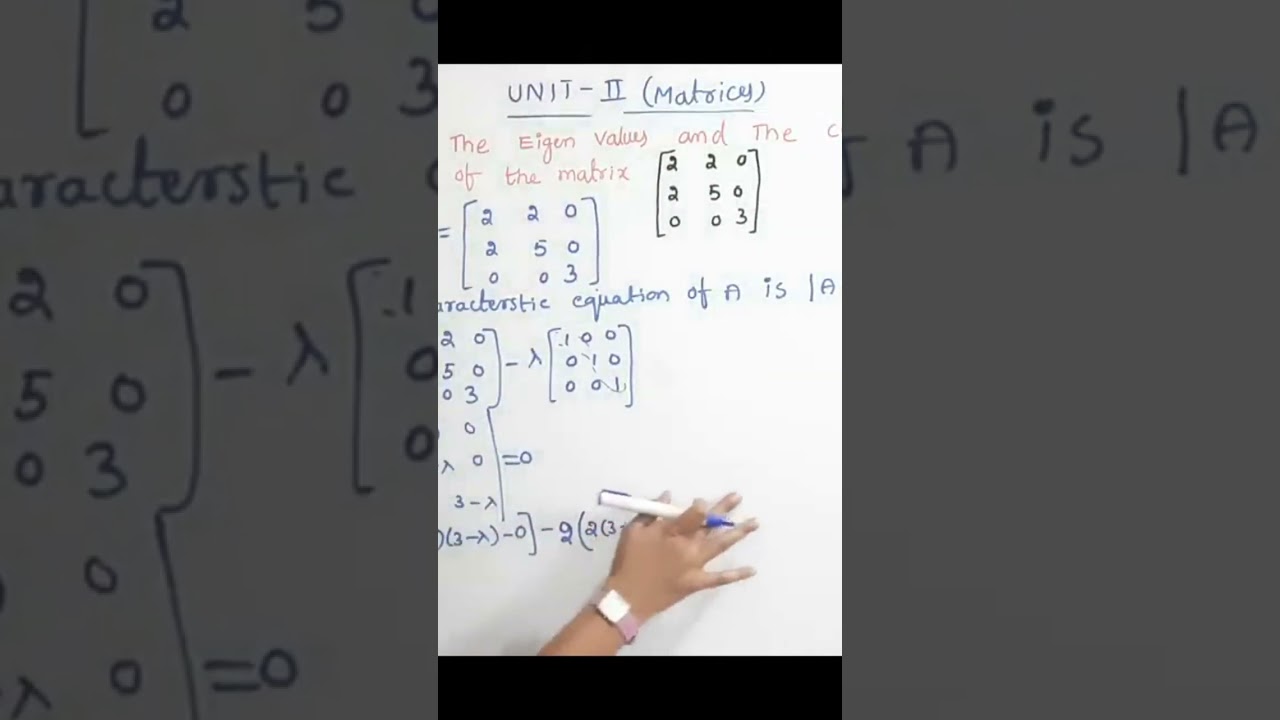 UNIT-II (Matrices)
The Eigen values and The C
of the matrix [2 2 0
2 5 0
0 0 3]
= [2 2 0
2 5 0
0 0 3]
aracterstic equation of A is |A
2 0
5 0
0 3] - λ [1 0 0
0 1 0
0 0 1]
0
λ 0 =0
3-λ
)(3-λ)-0] - 2(2(3-